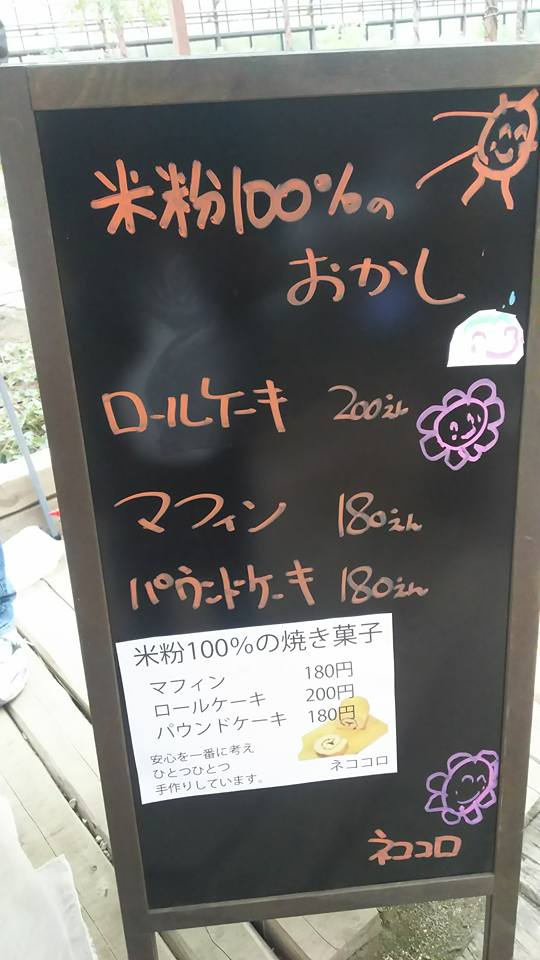 米粉100%の
おかし
ロールケーキ 200えん
マフィン 180えん
パウンドケーキ 180えん
米粉100%の焼き菓子
マフィン 180円
ロールケーキ 200円
パウンドケーキ 180円
安心を一番に考え
ひとつひとつ
手作りしています。
ネココロ
ネココロ